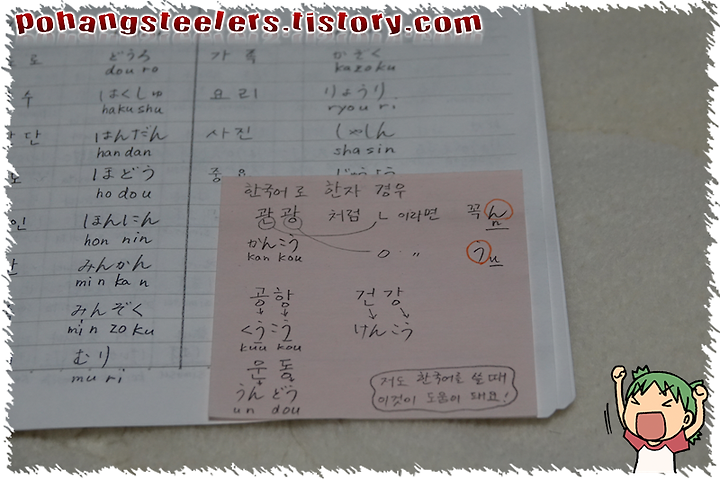 pohangsteelers.tistory.com
로 どうろ 가족 かぞく
douro kazoku
수 はくしゅ 요리 りょうり
hakushu ryouri
단 はんだん 사진 しゃしん
handan shasin
ほどう
hodou
인 ほんにん
hon nin
みんかん
minkan
みんぞく
min zoku
むり
muri
한국어로 한자 경우
관광 처럼 ㄴ 이라면 꼭 ん
n
かんこう ㅇ 〃 う u
kan kou
공항 건강
↓ ↓ ↓ ↓
くうこう けんこう
kuu kou
운동
うんどう
un dou
저도 한국어를 쓸 때
이것이 도움이 돼요!